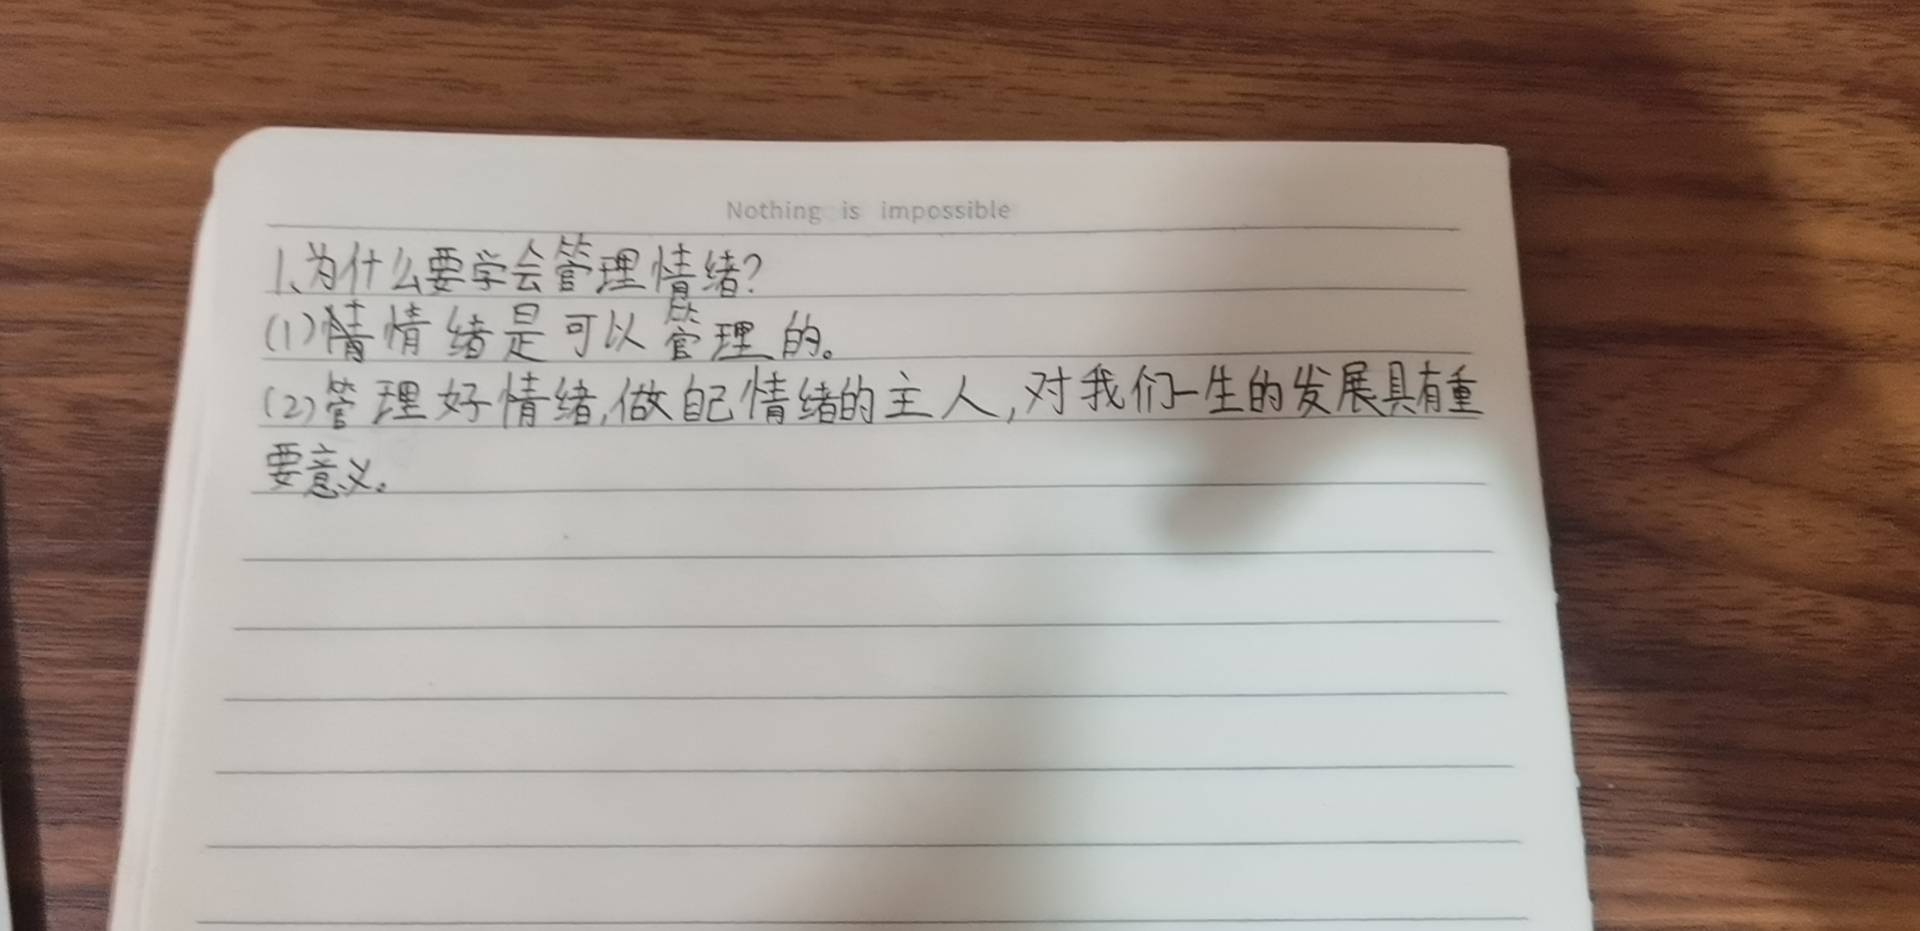 Nothing is impossible
1、为什么要学会管理情绪?
(1)情绪是可以管理的。
(2)管理好情绪,做自己情绪的主人,对我们一生的发展具有重
要意义。